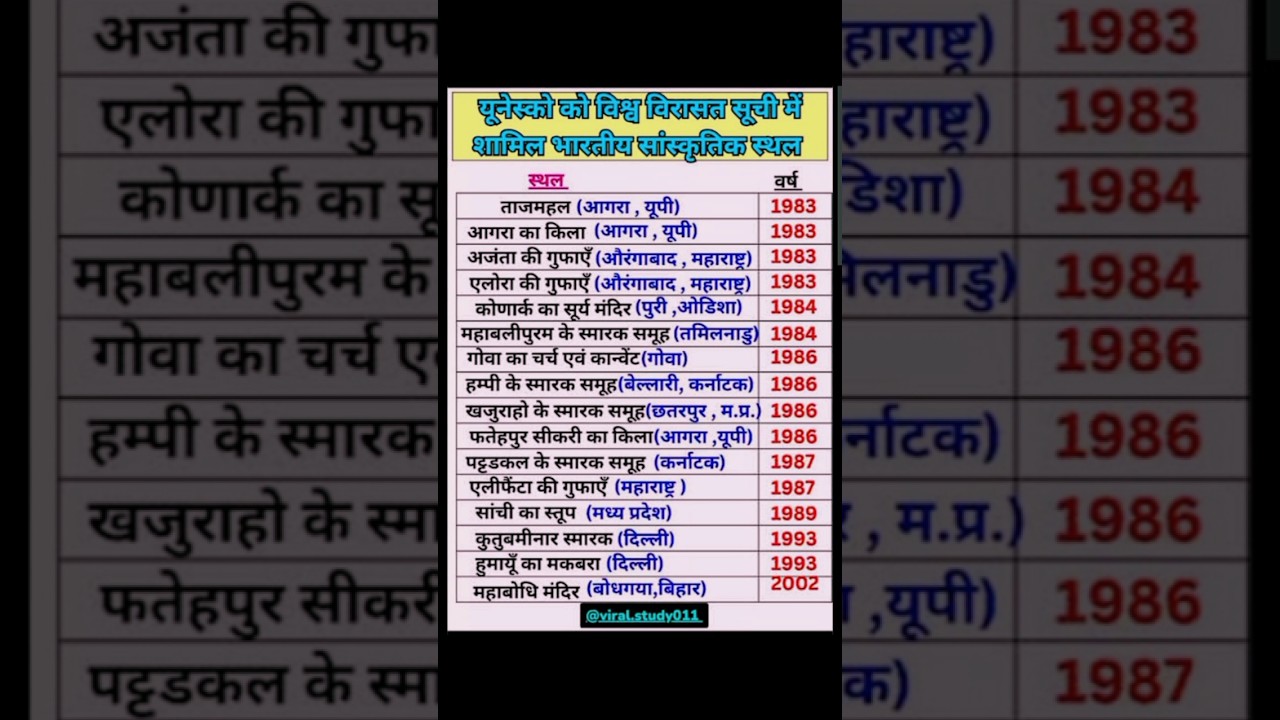 यूनेस्को को विश्व विरासत सूची में
शामिल भारतीय सांस्कृतिक स्थल
स्थल वर्ष
ताजमहल (आगरा , यूपी) 1983
आगरा का किला (आगरा , यूपी) 1983
अजंता की गुफाएँ (औरंगाबाद , महाराष्ट्र) 1983
एलोरा की गुफाएँ (औरंगाबाद , महाराष्ट्र) 1983
कोणार्क का सूर्य मंदिर (पुरी ,ओडिशा) 1984
महाबलीपुरम के स्मारक समूह (तमिलनाडु) 1984
गोवा का चर्च एवं कान्वेंट(गोवा) 1986
हम्पी के स्मारक समूह(बेल्लारी, कर्नाटक) 1986
खजुराहो के स्मारक समूह(छतरपुर , म.प्र.) 1986
फतेहपुर सीकरी का किला(आगरा ,यूपी) 1986
पट्टडकल के स्मारक समूह (कर्नाटक) 1987
एलीफैंटा की गुफाएँ (महाराष्ट्र ) 1987
सांची का स्तूप (मध्य प्रदेश) 1989
कुतुबमीनार स्मारक (दिल्ली) 1993
हुमायूँ का मकबरा (दिल्ली) 1993
महाबोधि मंदिर (बोधगया,बिहार) 2002
@viral.study011